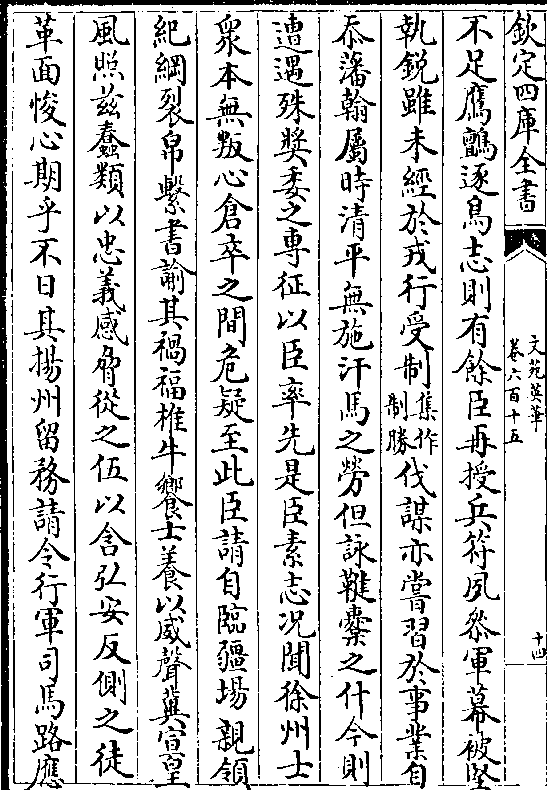 欽定四庫全書
文苑英華
卷六百十五
十四
不足鷹鸇逐鳥志則有餘臣再授兵符夙叅軍幕被堅
執鋭雖未經於戎行受制集作制勝伐謀亦嘗習於事業自
忝藩翰屬時清平無施汗馬之勞但詠鞬櫜之什今則
遭遇殊奬委之専征以臣率先是臣素志况聞徐州士
衆本無叛心倉卒之間危疑至此臣請自臨疆埸親領
紀綱裂帛繫書諭其禍福椎牛饗士養以威聲冀宣皇
風照兹蠢類以忠義感脅從之伍以含弘安反側之徒
革面悛心期乎不日其揚州留務請令行軍司馬路應